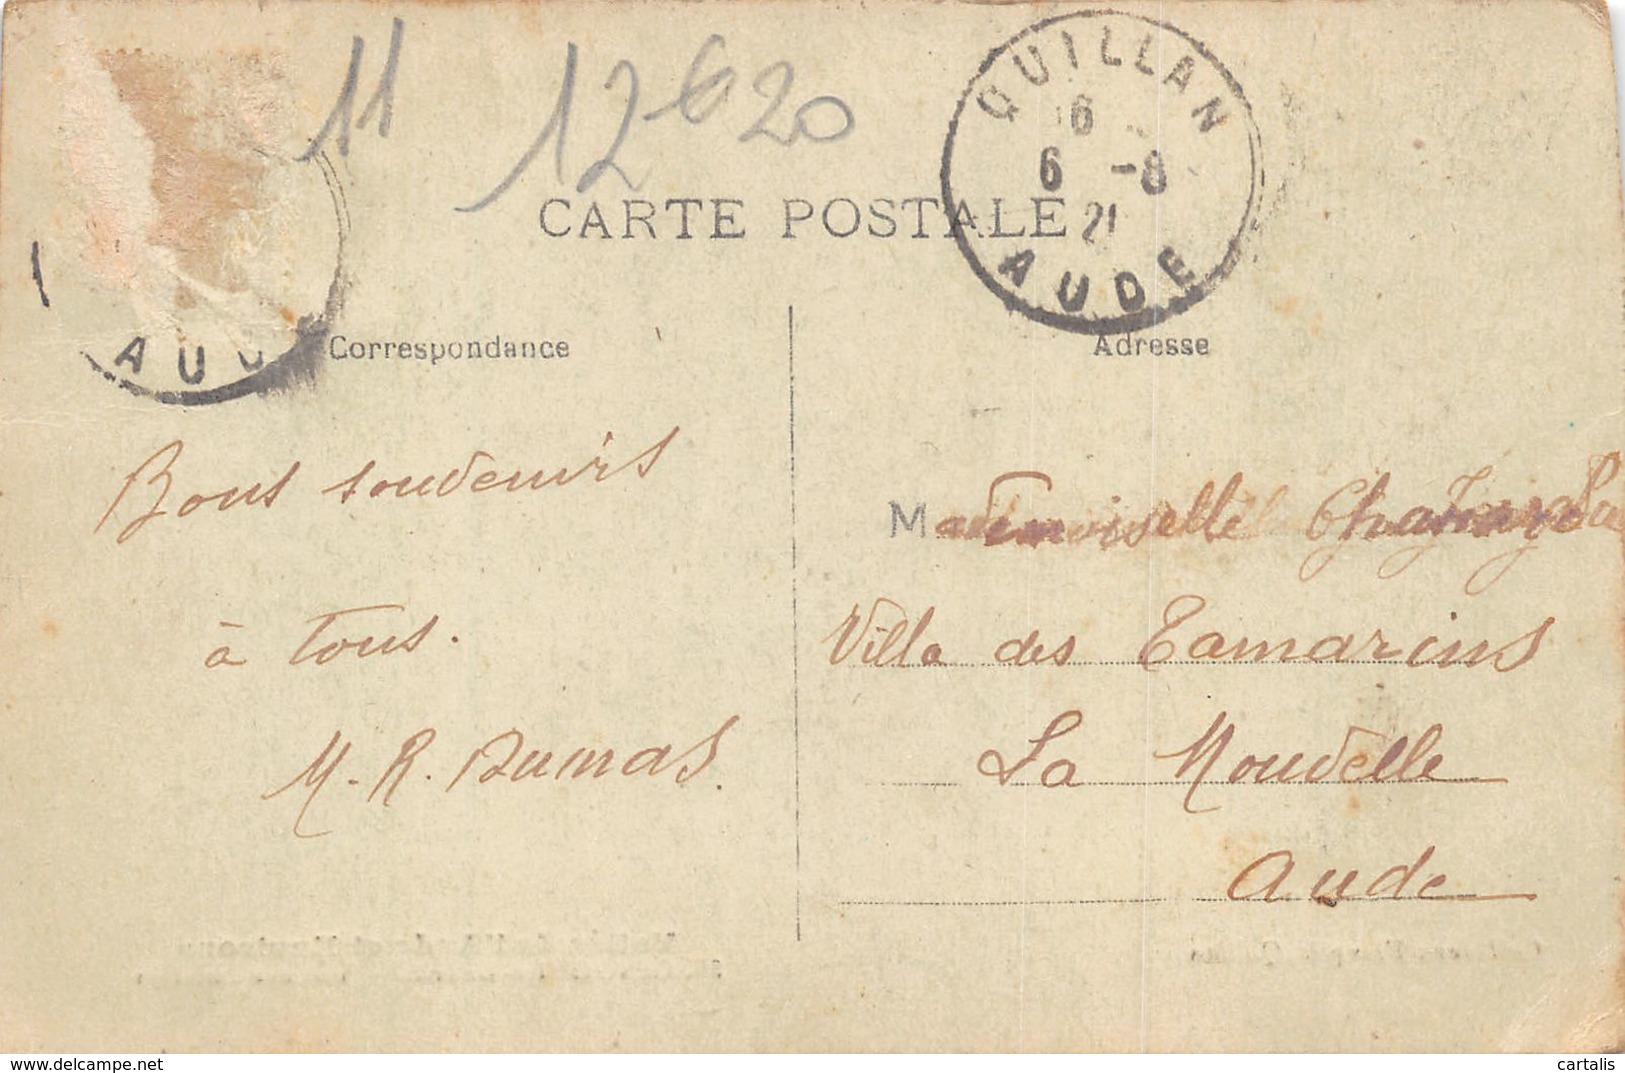 11 12-6 20
QUILLAN
6
6 -8
21
AUDE
CARTE POSTALE
AU
Correspondance
Adresse
Bons souvenirs
à tous.
M. R. Dumas.
Mademoiselle
Villa des Tamarins
La Nouvelle
Aude
cartalis
delcampe.net